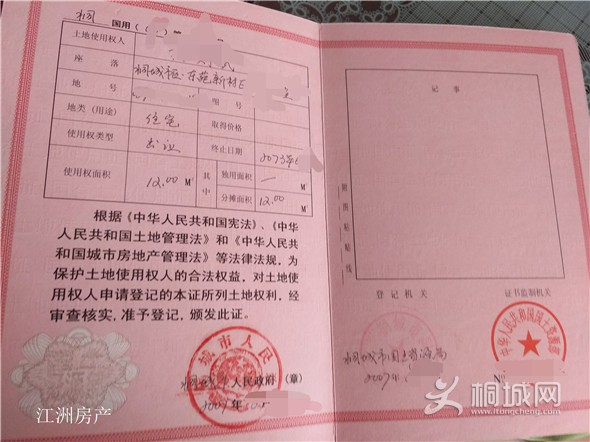 桐 国用(
土地使用权人
座落 桐城市区·东苑新村E
地号 图号
地类(用途) 住宅 取得价格
使用权类型 出让 终止日期 2073年
使用权面积 12.00 M² 其中 独用面积 — M²
分摊面积 12.00 M²
根据《中华人民共和国宪法》、《中
华人民共和国土地管理法》和《中华人民共
和国城市房地产管理法》等法律法规,为
保护土地使用权人的合法权益,对土地使
用权人申请登记的本证所列土地权利,经
审查核实,准予登记,颁发此证。
城市人民
人民政府(章)
2007年10.5
江洲房产
记事
附图粘贴线
登记机关 证书监制机关
中华人民共和国国土资源部
桐城市国土资源局
2007年
No.
桐城网
www.itongcheng.com